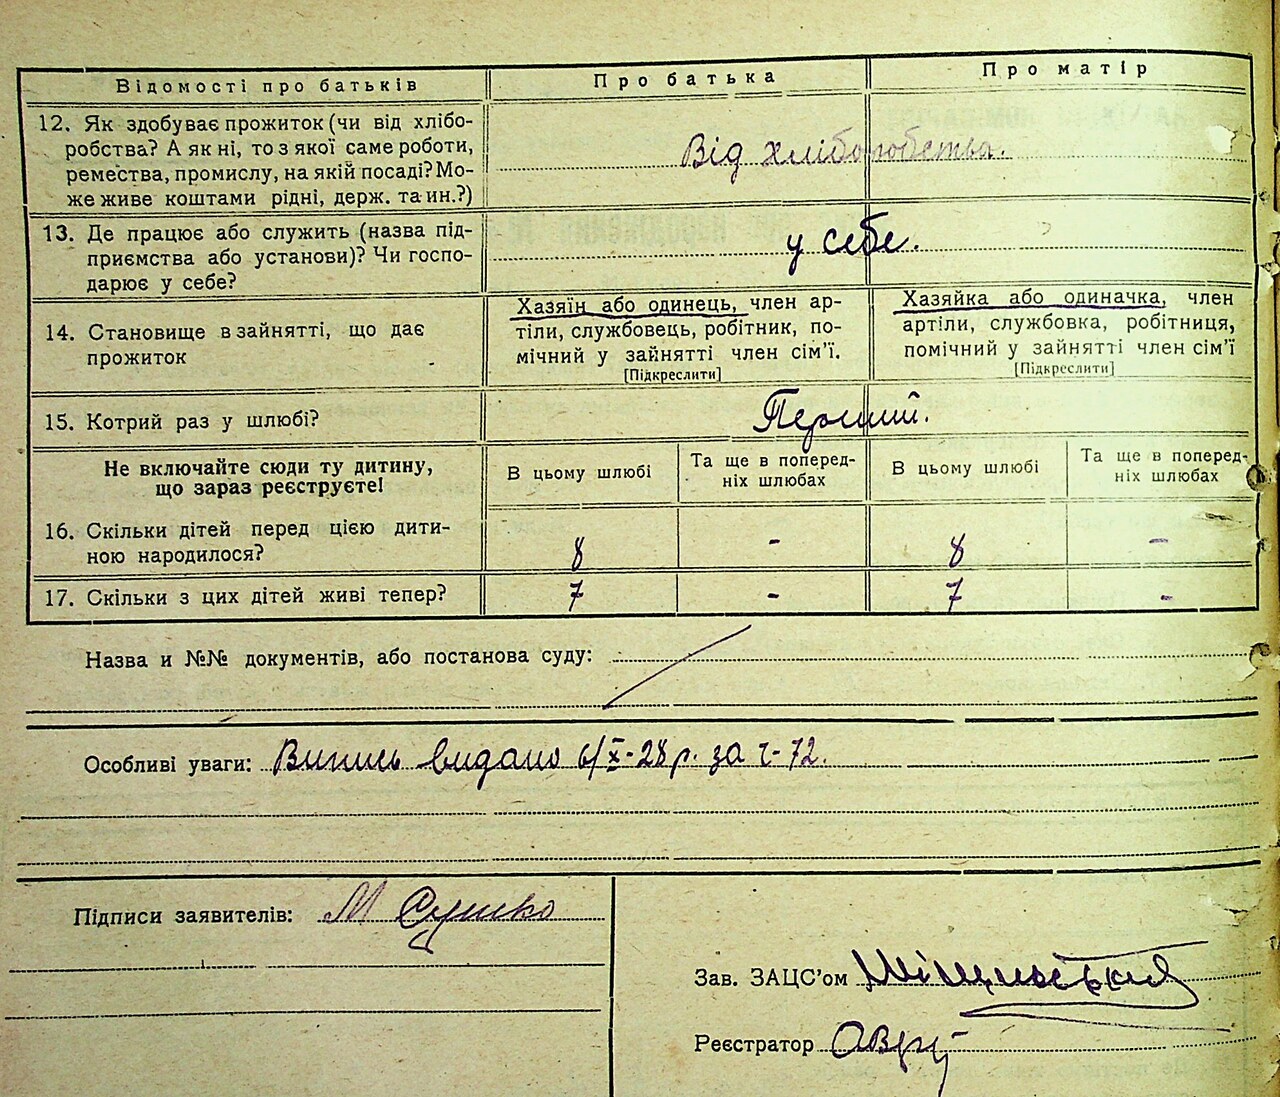 Відомості про батьків
Про батька
Про матір
12. Як здобуває прожиток (чи від хлібо-
робства? А як ні, то з якої саме роботи,
ремества, промислу, на якій посаді? Мо-
же живе коштами рідні, держ. та ин.?)
Від хліборобства.
13. Де працює або служить (назва під-
приємства або установи)? Чи госпо-
дарює у себе?
у себе.
14. Становище в зайнятті, що дає
прожиток
Хазяїн або одинець, член ар-
тіли, службовець, робітник, по-
мічний у зайнятті член сім'ї.
[Підкреслити]
Хазяйка або одиначка, член
артіли, службовка, робітниця,
помічний у зайнятті член сім'ї
[Підкреслити]
15. Котрий раз у шлюбі?
Перший.
Не включайте сюди ту дитину,
що зараз реєструєте!
В цьому шлюбі
Та ще в поперед-
ніх шлюбах
В цьому шлюбі
Та ще в поперед-
ніх шлюбах
16. Скільки дітей перед цією дити-
ною народилося?
8 - 8 -
17. Скільки з цих дітей живі тепер?
7 - 7 -
Назва и №№ документів, або постанова суду:
Особливі уваги: Випись видано 6/X-28 р. за ч-72.
Підписи заявителів: М Сушко
Зав. ЗАЦС'ом
Реєстратор